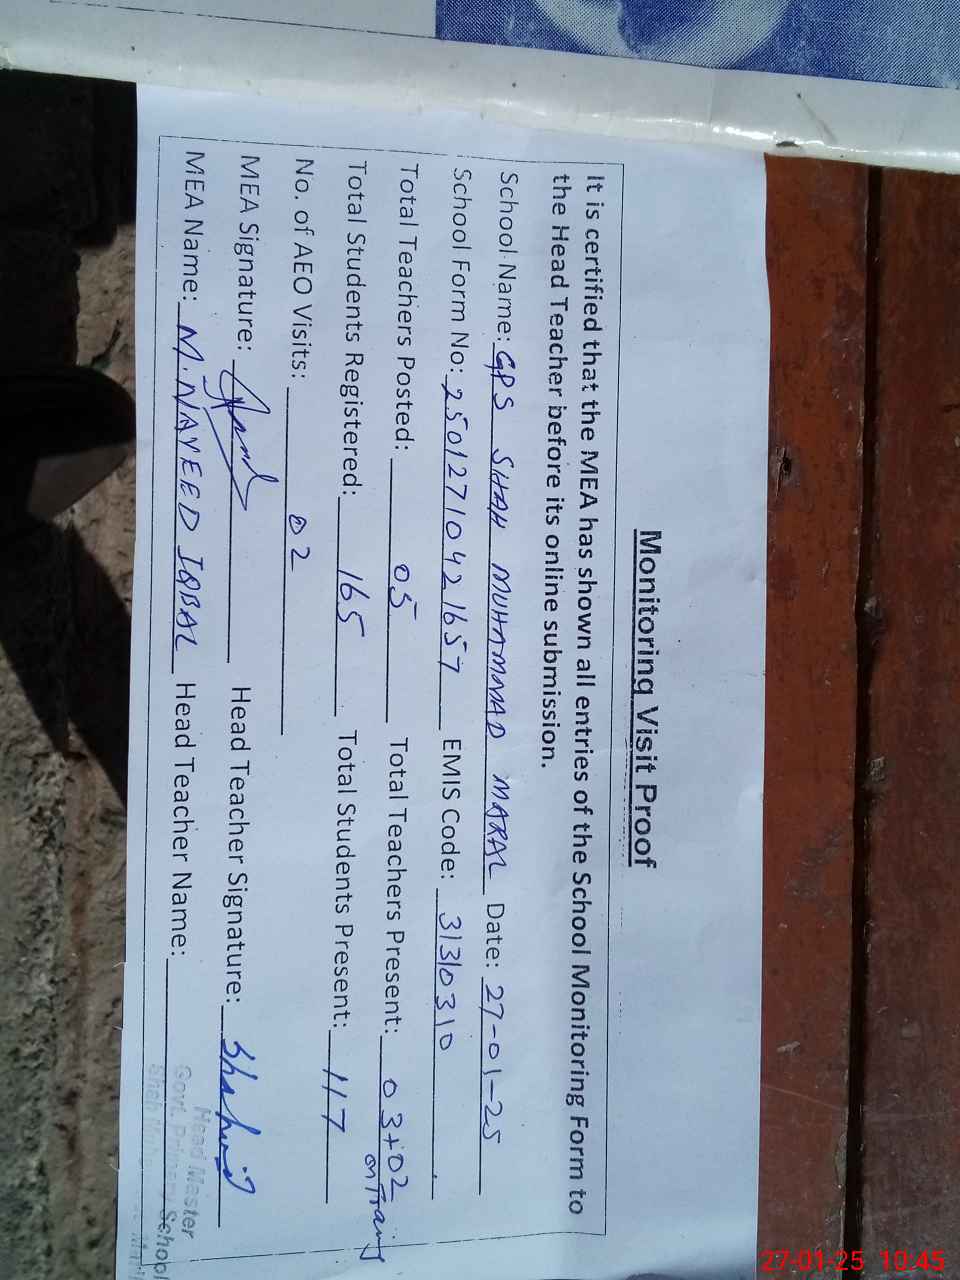 Monitoring Visit Proof
It is certified that the MEA has shown all entries of the School Monitoring Form to
the Head Teacher before its online submission.
School Name: GPS SHAH MUHAMMAD MARAL Date: 27-01-25
School Form No: 25012710421657 EMIS Code: 31310310
Total Teachers Posted: 05 Total Teachers Present: 03+02
on Traing
Total Students Registered: 165 Total Students Present: 117
No. of AEO Visits: 02
MEA Signature: Head Teacher Signature: Shahid
MEA Name: M. NAVEED IQBAL Head Teacher Name:
Head Master
Govt. Primary School
Shah
27-01-25 10:45